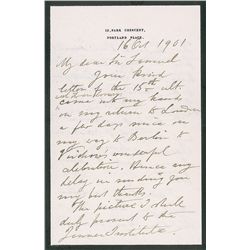 12, PARK CRESCENT,
PORTLAND PLACE.
16 Oct 1901
My dear Sir Samuel
Your kind
letter of the 15th ult.
came into my hands
on my return to London
a few days since on
my way to Berlin to
Virchow's wonderful
celebration. Hence my
delay in sending you
my best thanks.
The picture I shall
duly present to the
Jenner Institute.